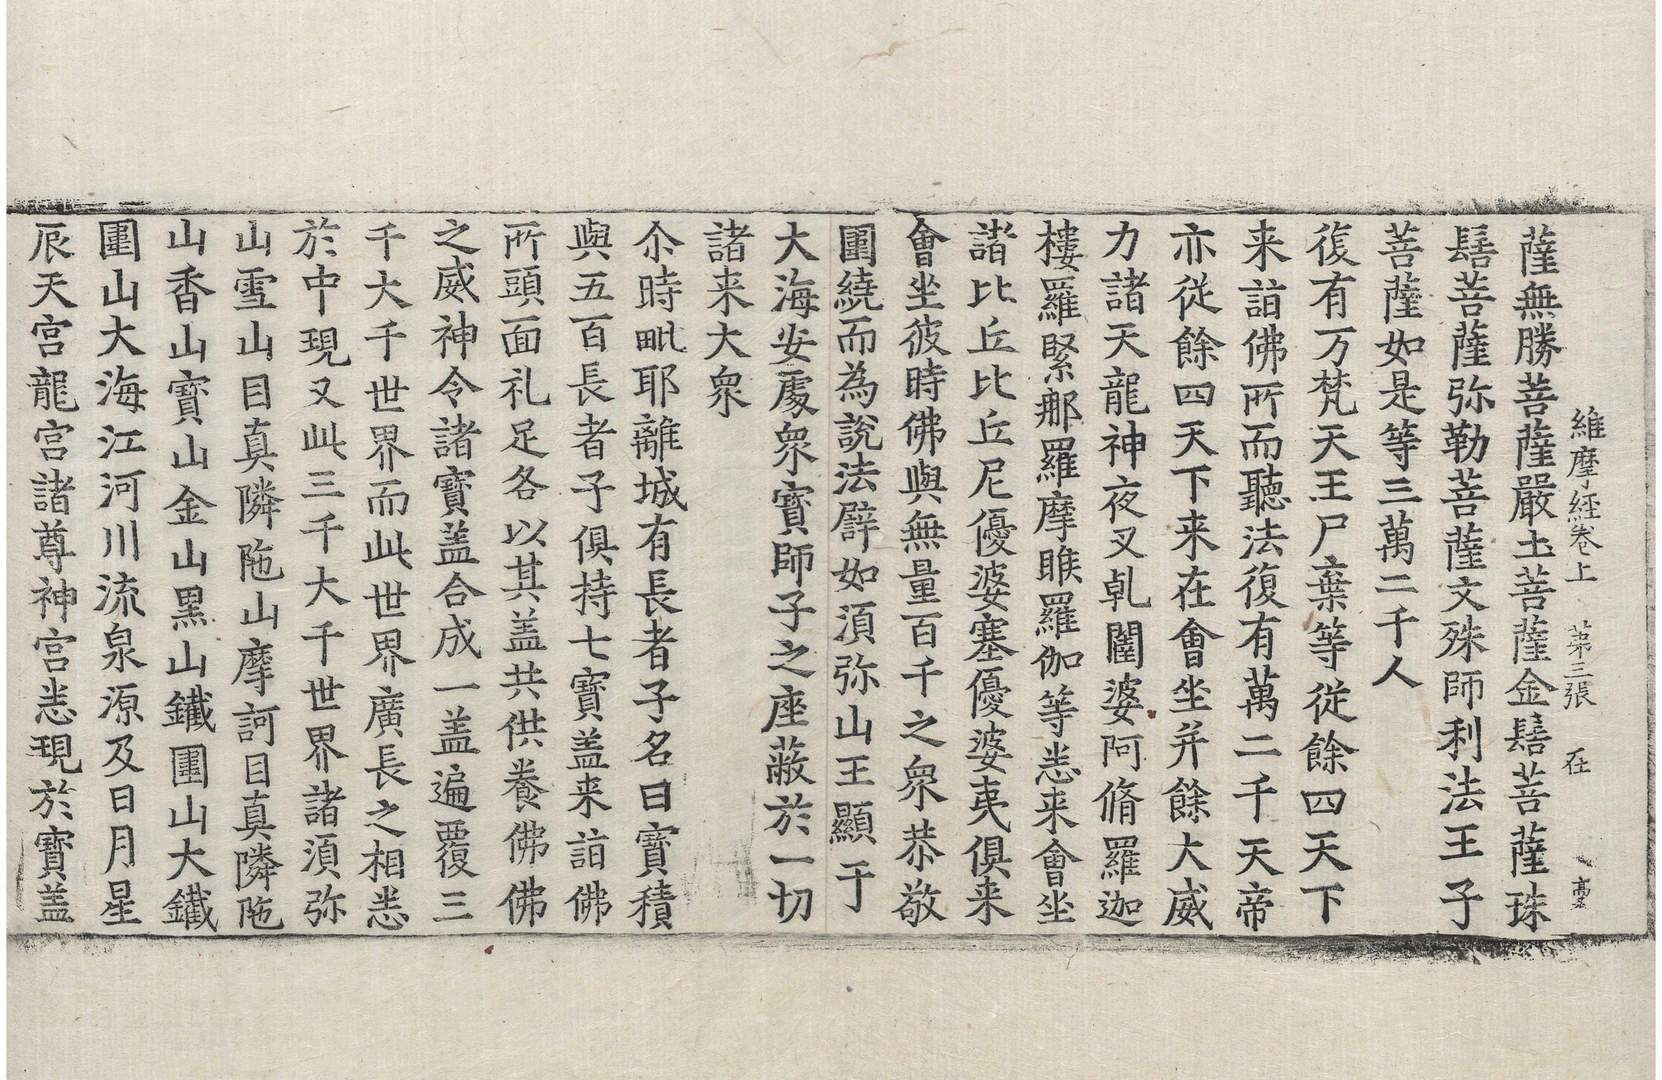 維摩經卷上　苐三張　在
薩無勝菩薩嚴圡菩薩金髻菩薩珠
髻菩薩弥勒菩薩文殊師利法王子
菩薩如是等三萬二千人
復有万梵天王尸棄等従餘四天下
来詣佛所而聽法復有萬二千天帝
亦従餘四天下来在會坐并餘大威
力諸天龍神夜叉乹闥婆阿脩羅迦
樓羅緊那羅摩睺羅伽等悉来會坐
諸比丘比丘尼優婆塞優婆夷俱来
會坐彼時佛與無量百千之衆恭敬
圍繞而為說法譬如須弥山王顯于
大海安處衆寳師子之座蔽於一切
諸来大衆
尒時毗耶離城有長者子名曰寳積
與五百長者子俱持七寳盖来詣佛
所頭面礼足各以其盖共供養佛佛
之威神令諸寳盖合成一盖遍覆三
千大千世界而此世界廣長之相悉
於中現又此三千大千世界諸須弥
山雪山目真隣陁山摩訶目真隣陁
山香山寳山金山黒山鐵圍山大鐵
圍山大海江河川流泉源及日月星
辰天宫龍宫諸尊神宫悉現於寳盖